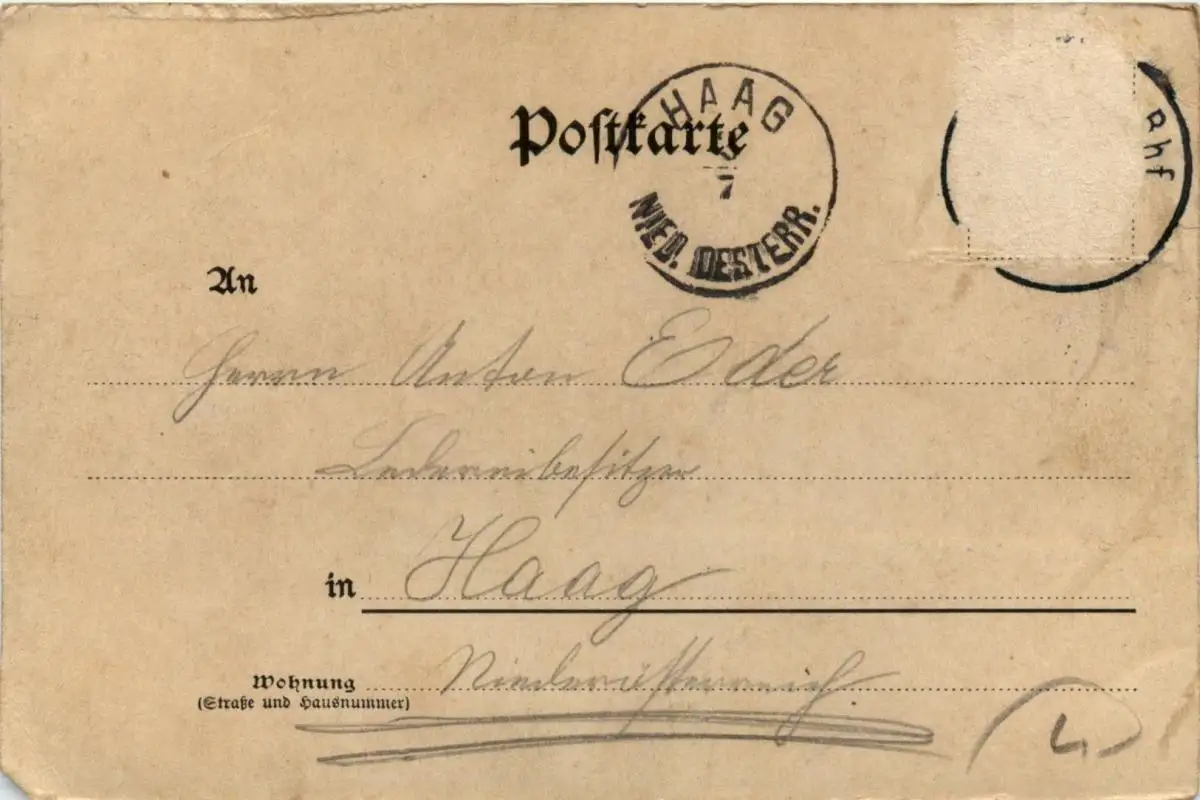 Postkarte
HAAG
7
NIED. OESTERR.
Bhf
An
Herrn Anton Eder
Ledereibesitzer
in Haag
Wohnung Niederösterreich
(Straße und Hausnummer)